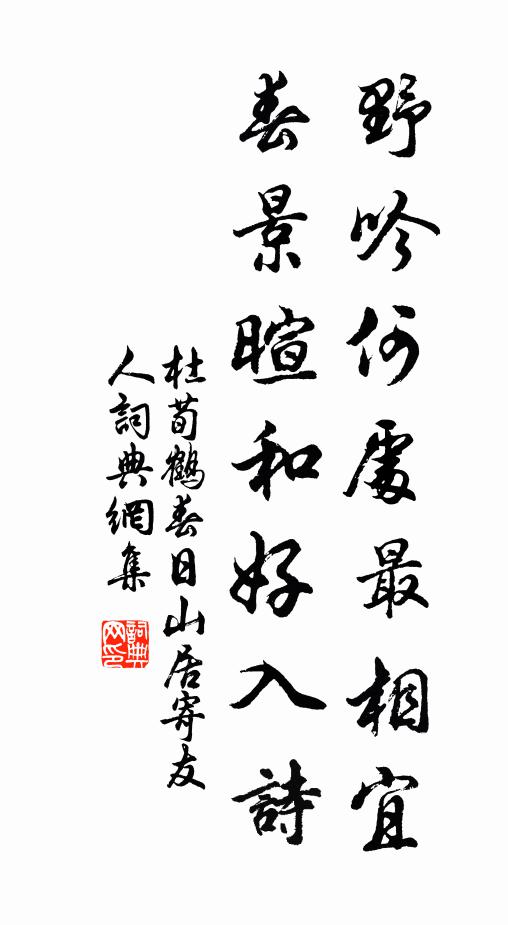 野吟何處最相宜
春景暄和好入詩
杜荀鶴春日山居寄友
人詞典網集
詞典
网印